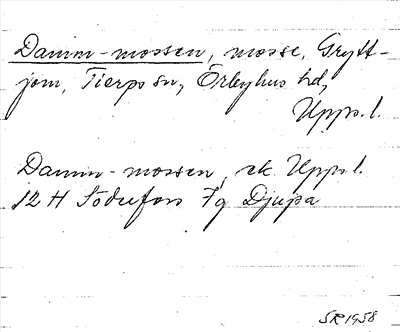 Damm-mossen, mosse, Grytt-
jom, Tierps sn, Örbyhus hd,
Upps. l.
Damm-mossen, ek Upps l.
12 H Söderfors 7g Djupa
SR 1958